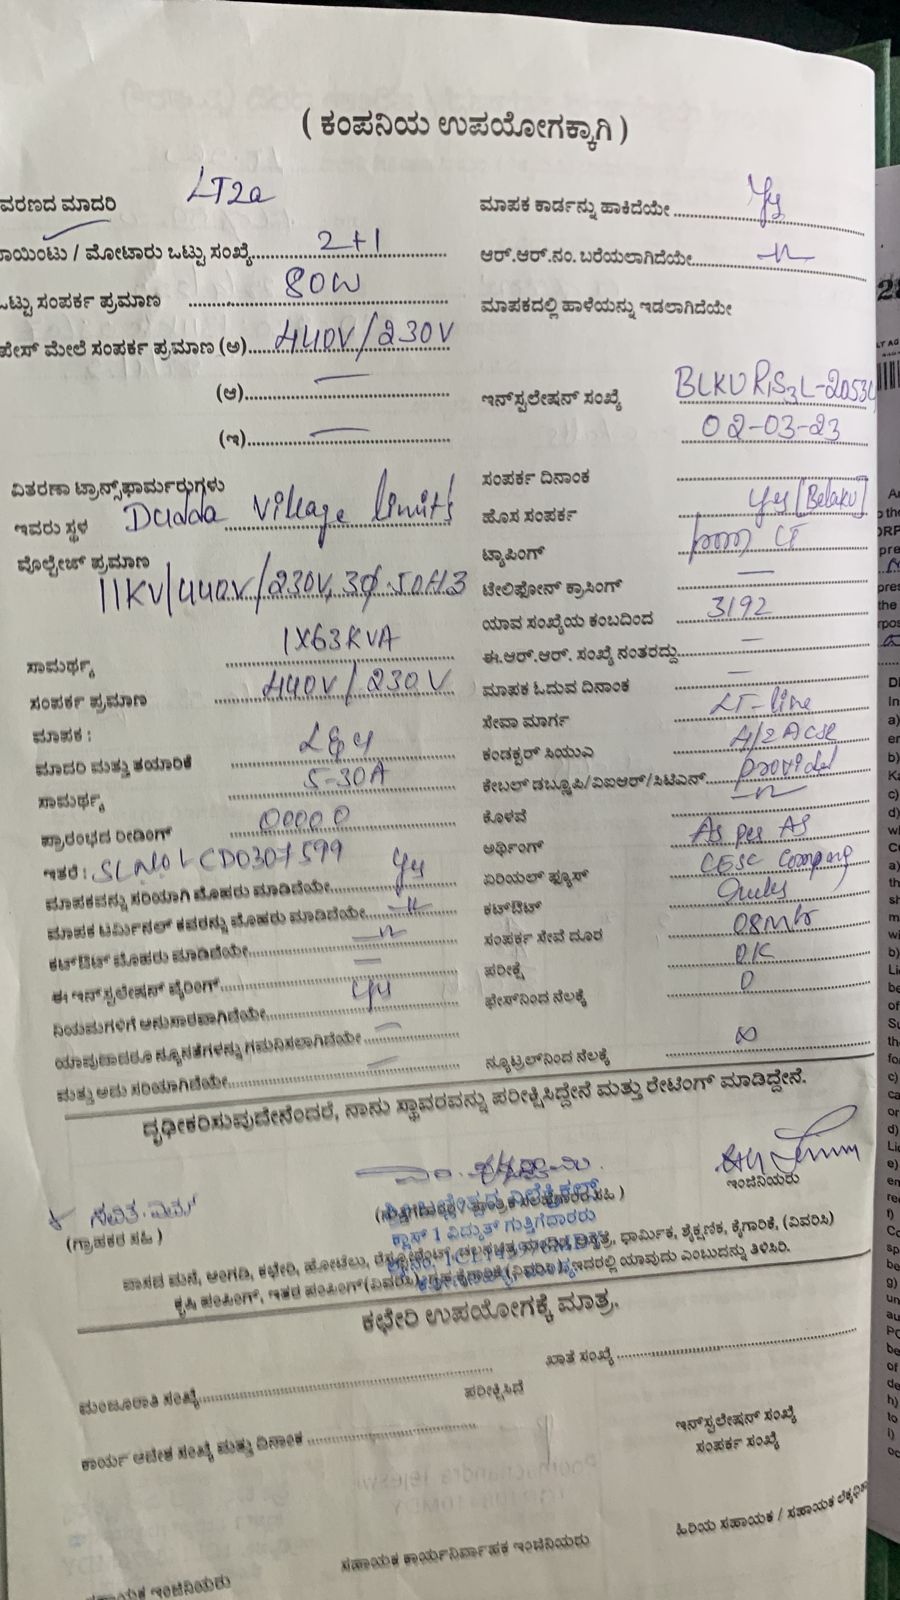 ( ಕಂಪನಿಯ ಉಪಯೋಗಕ್ಕಾಗಿ )
ವರಣದ ಮಾದರಿ LT2a
ಾಯಿಂಟು / ಮೋಟಾರು ಒಟ್ಟು ಸಂಖ್ಯೆ 2+1
ಒಟ್ಟು ಸಂಪರ್ಕ ಪ್ರಮಾಣ 80W
ಪೇಸ್ ಮೇಲೆ ಸಂಪರ್ಕ ಪ್ರಮಾಣ (ಅ) 440V/230V
(ಆ) —
(ಇ) —
ವಿತರಣಾ ಟ್ರಾನ್ಸ್‌ಫಾರ್ಮರುಗಳು
ಇವರು ಸ್ಥಳ Dudda Village limits
ವೋಲ್ಟೇಜ್ ಪ್ರಮಾಣ
11KV/440V/230V, 3ϕ 50HZ
ಸಾಮರ್ಥ್ಯ 1X63KVA
ಸಂಪರ್ಕ ಪ್ರಮಾಣ 440V/230V
ಮಾಪಕ :
ಮಾದರಿ ಮತ್ತು ತಯಾರಿಕೆ L&T
ಸಾಮರ್ಥ್ಯ 5-30A
ಪ್ರಾರಂಭದ ರೀಡಿಂಗ್ 00000
ಇತರೆ : SL NO LCD0307599
ಮಾಪಕವನ್ನು ಸರಿಯಾಗಿ ಮೊಹರು ಮಾಡಿದೆಯೇ Yes
ಮಾಪಕ ಟರ್ಮಿನಲ್ ಕವರನ್ನು ಮೊಹರು ಮಾಡಿದೆಯೇ —"—
ಕಟ್‌ಔಟ್ ಮೊಹರು ಮಾಡಿದೆಯೇ —"—
ಈ ಇನ್‌ಸ್ಟಲೇಷನ್ ವೈರಿಂಗ್ —
ನಿಯಮಗಳಿಗೆ ಅನುಸಾರವಾಗಿದೆಯೇ Yes
ಯಾವುದಾದರೂ ನ್ಯೂನತೆಗಳನ್ನು ಗಮನಿಸಲಾಗಿದೆಯೇ —
ಮತ್ತು ಅದು ಸರಿಯಾಗಿದೆಯೇ —
ಮಾಪಕ ಕಾರ್ಡನ್ನು ಹಾಕಿದೆಯೇ Yes
ಆರ್.ಆರ್.ನಂ. ಬರೆಯಲಾಗಿದೆಯೇ —"—
ಮಾಪಕದಲ್ಲಿ ಹಾಳೆಯನ್ನು ಇಡಲಾಗಿದೆಯೇ
ಇನ್‌ಸ್ಟಲೇಷನ್ ಸಂಖ್ಯೆ
02-03-23
ಸಂಪರ್ಕ ದಿನಾಂಕ
ಹೊಸ ಸಂಪರ್ಕ Yes [Belaku]
ಟ್ಯಾಪಿಂಗ್ from
ಟೆಲಿಫೋನ್ ಕ್ರಾಸಿಂಗ್ —
ಯಾವ ಸಂಖ್ಯೆಯ ಕಂಬದಿಂದ 3192
ಈ.ಆರ್.ಆರ್. ಸಂಖ್ಯೆ ನಂತರದ್ದು —
ಮಾಪಕ ಓದುವ ದಿನಾಂಕ —
ಸೇವಾ ಮಾರ್ಗ LT-line
ಕಂಡಕ್ಟರ್ ಸಿಯುವಿ
ಕೇಬಲ್ ಡಬ್ಲೂಪಿ/ವಿಐಆರ್/ಸಿಟಿಎಸ್ Provided
ಕೊಳವೆ —"—
ಅರ್ಥಿಂಗ್ As per AS
ಏರಿಯಲ್ ಫ್ಯೂಸ್ CESC Company
ಕಟ್‌ಔಟ್ Rules
ಸಂಪರ್ಕ ಸೇವೆ ದೂರ 08Mtr
ಪರೀಕ್ಷೆ OK
ಫೇಸ್‌ನಿಂದ ನೆಲಕ್ಕೆ 0
ನ್ಯೂಟ್ರಲ್‌ನಿಂದ ನೆಲಕ್ಕೆ ∞
ದೃಢೀಕರಿಸುವುದೇನೆಂದರೆ, ನಾನು ಸ್ಥಾವರವನ್ನು ಪರೀಕ್ಷಿಸಿದ್ದೇನೆ ಮತ್ತು ರೇಟಿಂಗ್ ಮಾಡಿದ್ದೇನೆ.
(ಗ್ರಾಹಕರ ಸಹಿ )
ಇಂಜಿನಿಯರು
ಕ್ಲಾಸ್ 1 ವಿದ್ಯುತ್ ಗುತ್ತಿಗೆದಾರರು
ವಾಸದ ಮನೆ, ಅಂಗಡಿ, ಕಛೇರಿ, ಹೋಟೆಲು, ಧಾರ್ಮಿಕ, ಶೈಕ್ಷಣಿಕ, ಕೈಗಾರಿಕೆ, (ವಿವರಿಸಿ)
ಕೃಷಿ ಪಂಪಿಂಗ್, ಇತರ ಪಂಪಿಂಗ್ (ವಿವರಿಸಿ) ಇದರಲ್ಲಿ ಯಾವುದು ಎಂಬುದನ್ನು ತಿಳಿಸಿರಿ.
ಕಛೇರಿ ಉಪಯೋಗಕ್ಕೆ ಮಾತ್ರ.
ಮಂಜೂರಾತಿ ಸಂಖ್ಯೆ
ಖಾತೆ ಸಂಖ್ಯೆ
ಪರೀಕ್ಷಿಸಿದೆ
ಕಾರ್ಯ ಆದೇಶ ಸಂಖ್ಯೆ ಮತ್ತು ದಿನಾಂಕ
ಇನ್‌ಸ್ಟಲೇಷನ್ ಸಂಖ್ಯೆ
ಸಂಪರ್ಕ ಸಂಖ್ಯೆ
ಸಹಾಯಕ ಇಂಜಿನಿಯರು
ಸಹಾಯಕ ಕಾರ್ಯನಿರ್ವಾಹಕ ಇಂಜಿನಿಯರು
ಹಿರಿಯ ಸಹಾಯಕ / ಸಹಾಯಕ